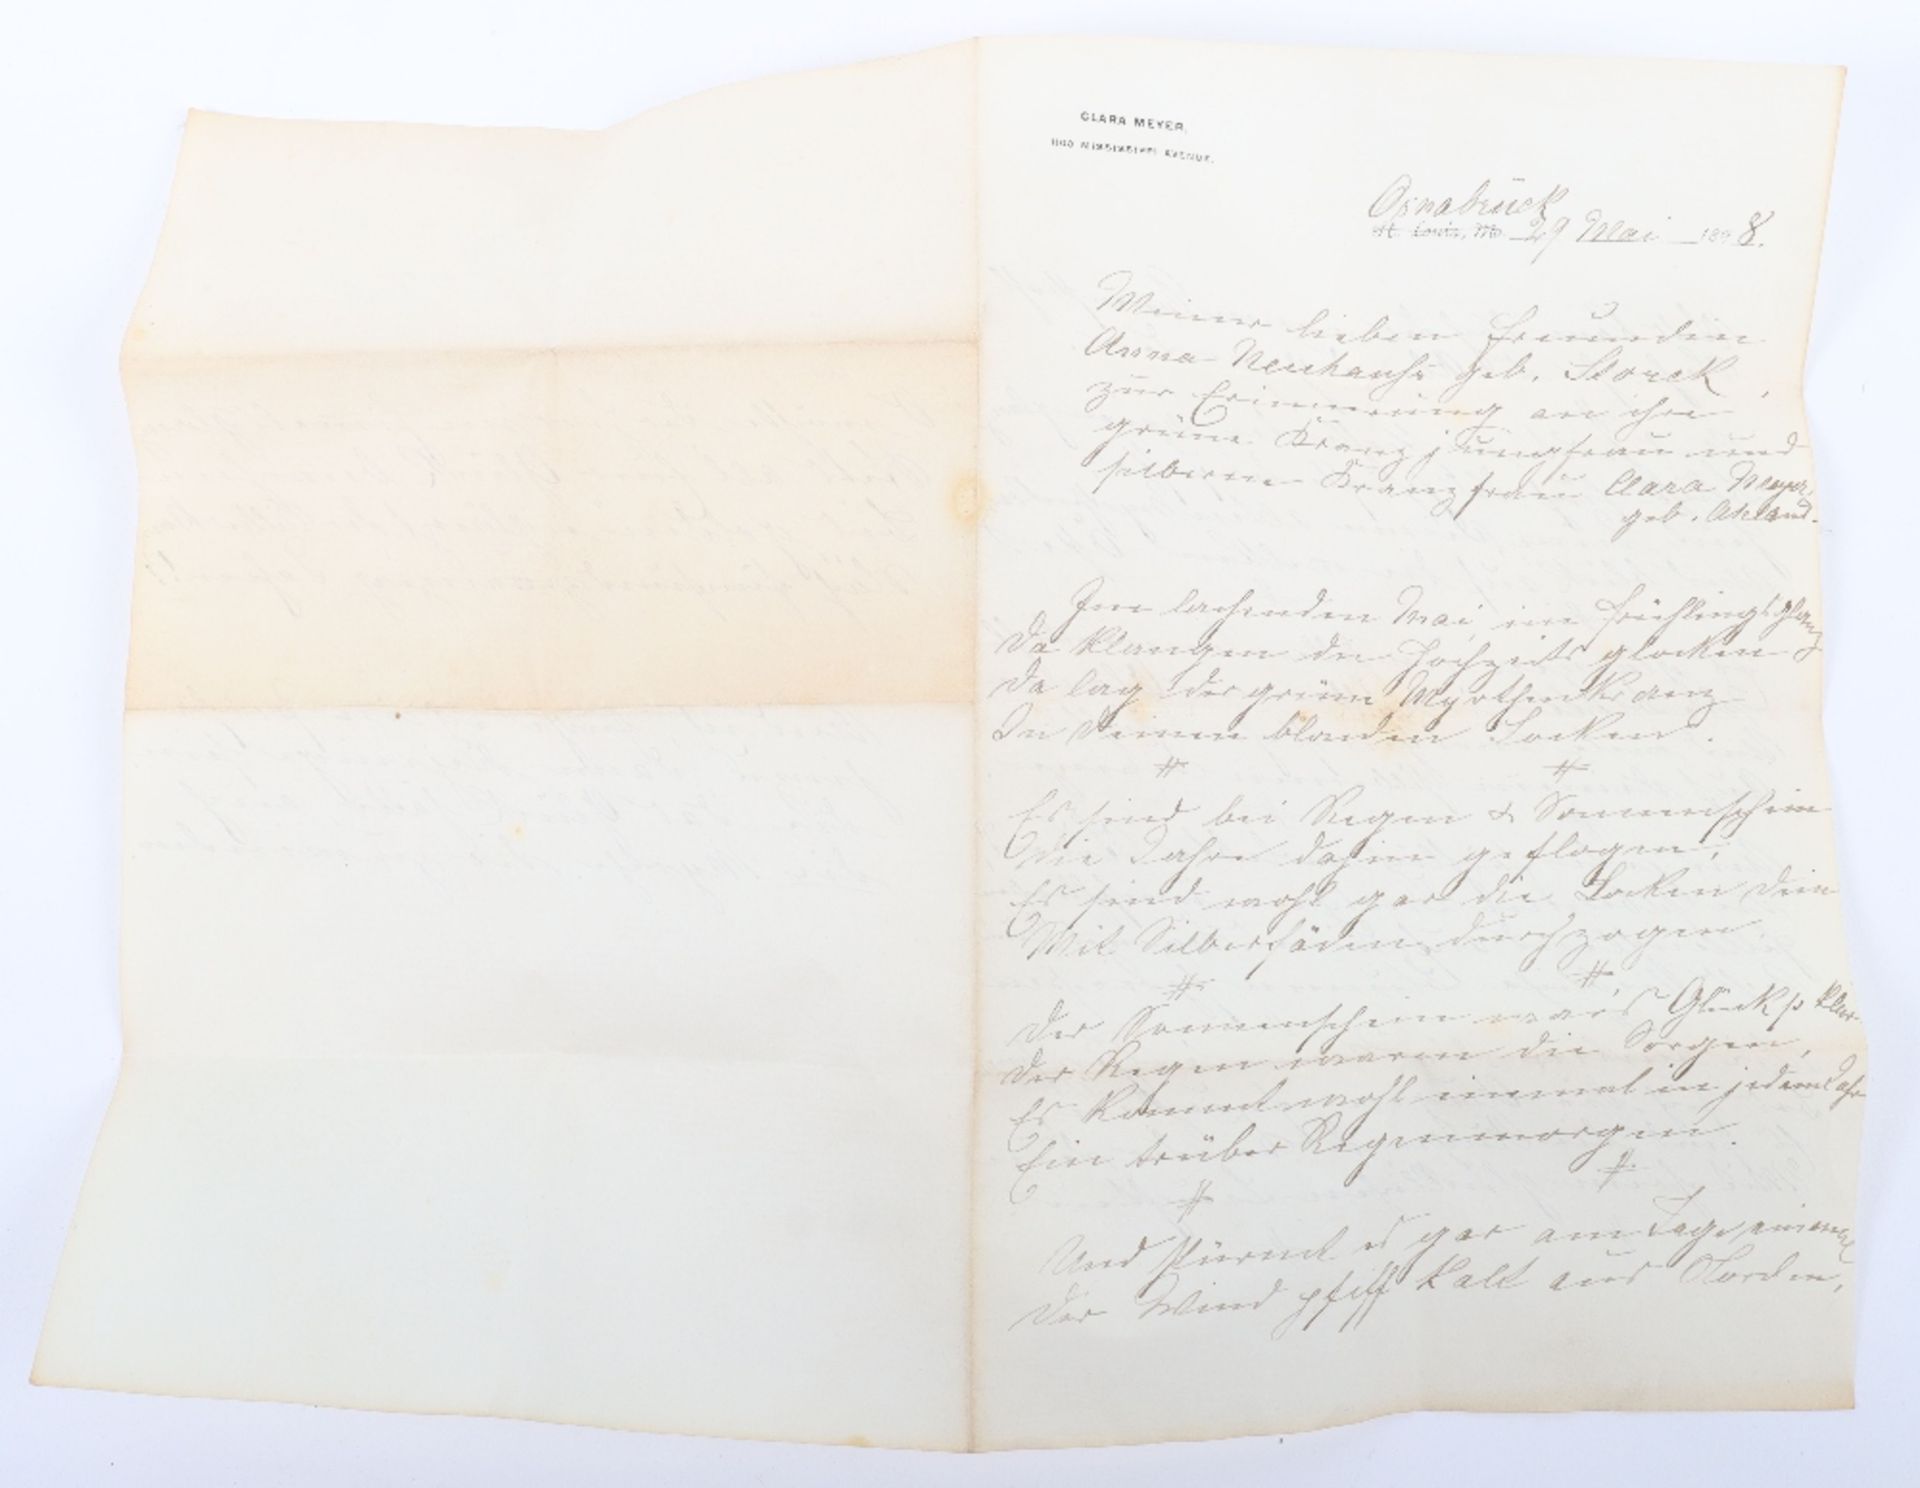 CLARA MEYER,
MISSISSIPPI AVENUE.
Osnabrück
St. Louis, Mo. 29 Mai 1898.
Meiner lieben Freundin
Anna Neuhaus geb. Storck,
zur Erinnerung an ihre
grüne Kranzjungfrau und
silberne Kranzfrau Clara Meyer,
geb.
Im lachenden Mai, im Frühlingsglanz
Da klangen die Hochzeitsglocken
Da lag der grüne Myrthenkranz
In Deinen blonden Locken.
# #
Es sind bei Regen & Sonnenschein
Die Jahre dahin geflogen,
Es sind wohl gar die Locken Dein
Mit Silberfäden durchzogen
# #
Der Sonnenschein war's Glück so klar
Der Regen waren die Sorgen,
Es kommt wohl einmal in jedem Jahr
Ein trüber Regenmorgen.
# #
Und stürmt es gar am Tage einmal
Der Wind pfiff kalt aus Norden,